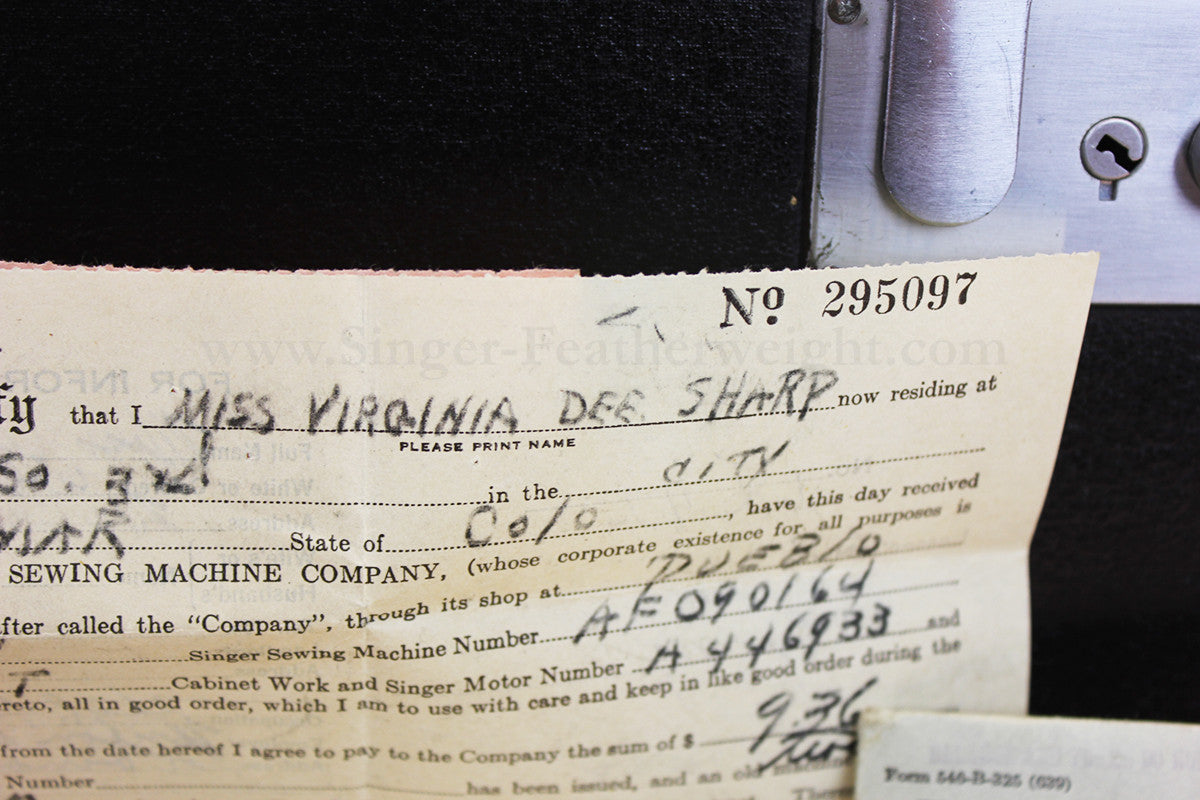 No 295097
www.Singer-Featherweight.com
fy that I MISS VIRGINIA DEE SHARP now residing at
PLEASE PRINT NAME
So. 3rd in the CITY
State of Colo, have this day received
SEWING MACHINE COMPANY, (whose corporate existence for all purposes is
fter called the "Company", through its shop at PUEBLO
Singer Sewing Machine Number AF090164
T Cabinet Work and Singer Motor Number A446933 and
ereto, all in good order, which I am to use with care and keep in like good order during the
from the date hereof I agree to pay to the Company the sum of $ 9.36
Number has been issued, and an old machine
Form 546-B-225 (639)